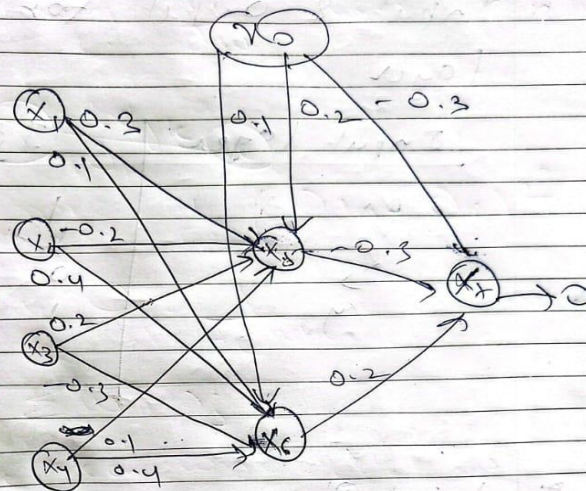 X0
X1 0.3
0.1
0.1 0.2 -0.3
X2 -0.2
0.4
X5 -0.3
X7 0
0.2
X3
-0.3
0.2
X6
0.1
X4 0.4